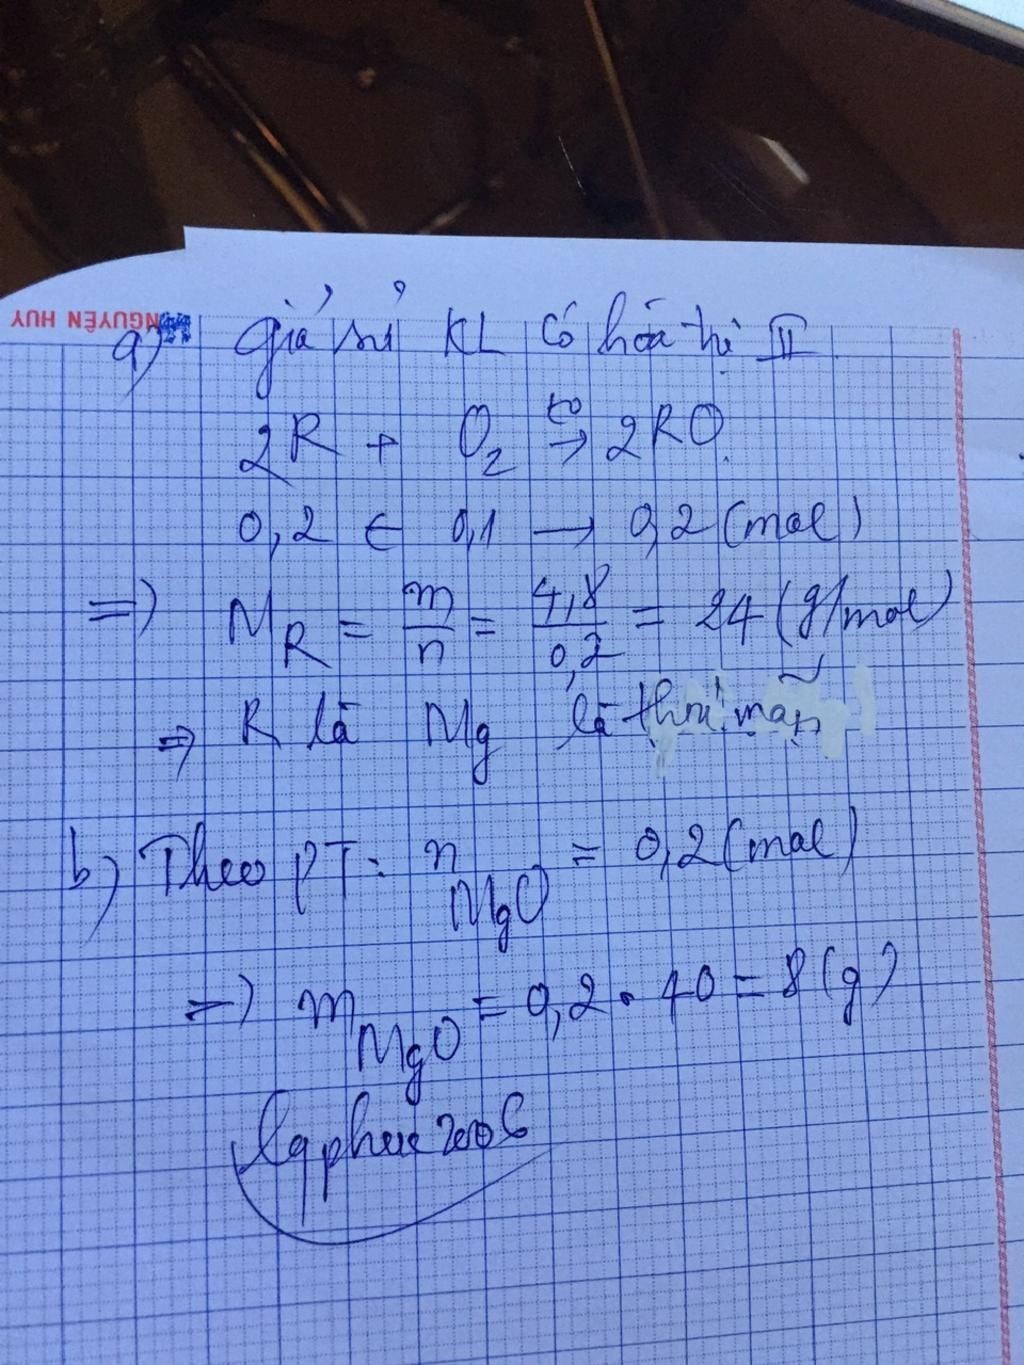 NGUYỄN HUY
a) Giả sử KL có hóa trị II
2R + O₂ →(t⁰) 2RO.
0,2 ← 0,1 → 0,2 (mol)
=> M_R = m/n = 4,8/0,2 = 24 (g/mol)
=> R là Mg là thỏa mãn
b) Theo PT: n_MgO = 0,2 (mol)
=> m_MgO = 0,2 . 40 = 8 (g)
lqphuc2006